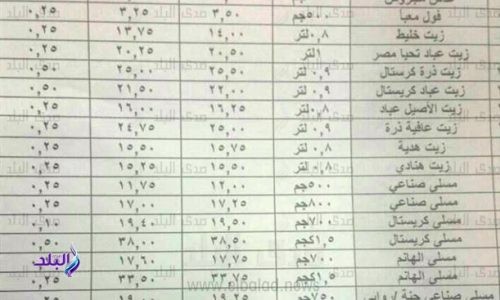 فول معبأ ٣,٥٠ ٣,٢٥ ٠,٢٥
زيت خليط ٠,٨ لتر ١٤,٠٠ ١٣,٧٥ ٠,٢٥
زيت عباد تحيا مصر ١لتر ٢٠,٥٠ ٢٠,٢٥ ٠,٢٥
زيت ذرة كرستال ٠,٩ لتر ٢٥,٥٠ ٢٥,٠٠ ٠,٥٠
زيت عباد كريستال ٠,٩ لتر ٢٢,٠٠ ٢١,٥٠ ٠,٥٠
زيت الأصيل عباد ٠,٨ لتر ١٦,٢٥ ١٦,٠٠ ٠,٢٥
زيت عافية ذرة ٠,٩ لتر ٢٥,٠٠ ٢٤,٧٥ ٠,٢٥
زيت هدية ٠,٨ لتر ١٥,٧٥ ١٥,٥٠ ٠,٢٥
زيت هنادي ٠,٨ لتر ١٥,٥٠ ١٥,٢٥ ٠,٢٥
مسلى صناعي ٥٠٠جم ١٢,٠٠ ١١,٧٥ ٠,٢٥
مسلى صناعي ٨٠٠جم ١٧,٢٥ ١٧,٠٠ ٠,٢٥
مسلى كريستال ٧٠٠جم ١٩,٥٠ ١٩,٤٠
مسلى كريستال ١,٥كجم ٣٨,٥٠ ٣٨,٠٠ ٠,٥٠
مسلى الهانم ٧٠٠جم ١٧,٧٥ ١٧,٦٠
مسلى الهانم ١,٥كجم ٣٣,٧٥ ٣٣,٥٠ ٠,٢٥
مسلى صناعي جنة
صدى البلد
البلد
www.elbalad.news